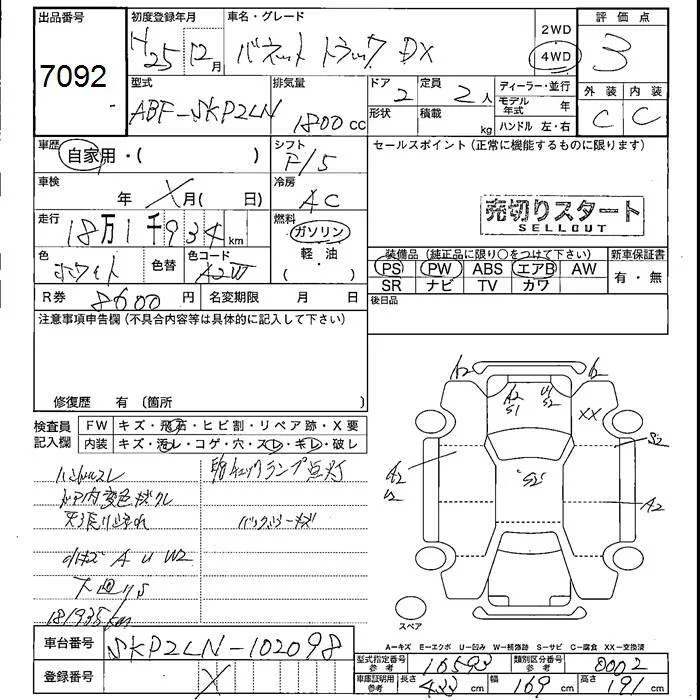 出品番号
7092
初度登録年月
H25 12月
車名・グレード
バネット トラック DX
2WD
4WD
評価点
3
型式
ABF-SKP2LN
排気量
1800cc
ドア
2
定員
2人
形状
積載
kg
ディーラー・並行
モデル年式 年
ハンドル 左・右
外装
C
内装
C
車歴
自家用・( )
シフト
F/5
セールスポイント(正常に機能するものに限ります)
売切りスタート
SELLOUT
車検
年 月( 日)
冷房
AC
走行
18万1千934km
燃料
ガソリン
軽・油
( )
色
ホワイト
色替
色コード
A2W
装備品(純正品に限り○をつけて下さい)
PS PW ABS エアB AW
SR ナビ TV カワ
新車保証書
有・無
R券 8600円
名変期限 月 日
後日品
注意事項申告欄(不具合内容等は具体的に記入して下さい)
修復歴 有(箇所 )
検査員記入欄
FW キズ・飛石・ヒビ割・リペア跡・X要
内装 キズ・汚レ・コゲ・穴・スレ・キレ・破レ
ハンドルスレ
ドア内変色
天張り汚れ
A U W2
下廻りS
181935km
チェックランプ点灯
A2
A2
S1
U1
S2
XX
S2
A2
U2
S2
A2
スペア
A－キズ E－エクボ U－凹み W－補修跡 S－サビ C－腐食 XX－交換済
車台番号
SKP2LN-102098
登録番号
X
型式指定番号 参考
16593
類別区分番号 参考
0002
車庫証明用 参考
長さ 433cm
幅 169cm
高さ 191cm